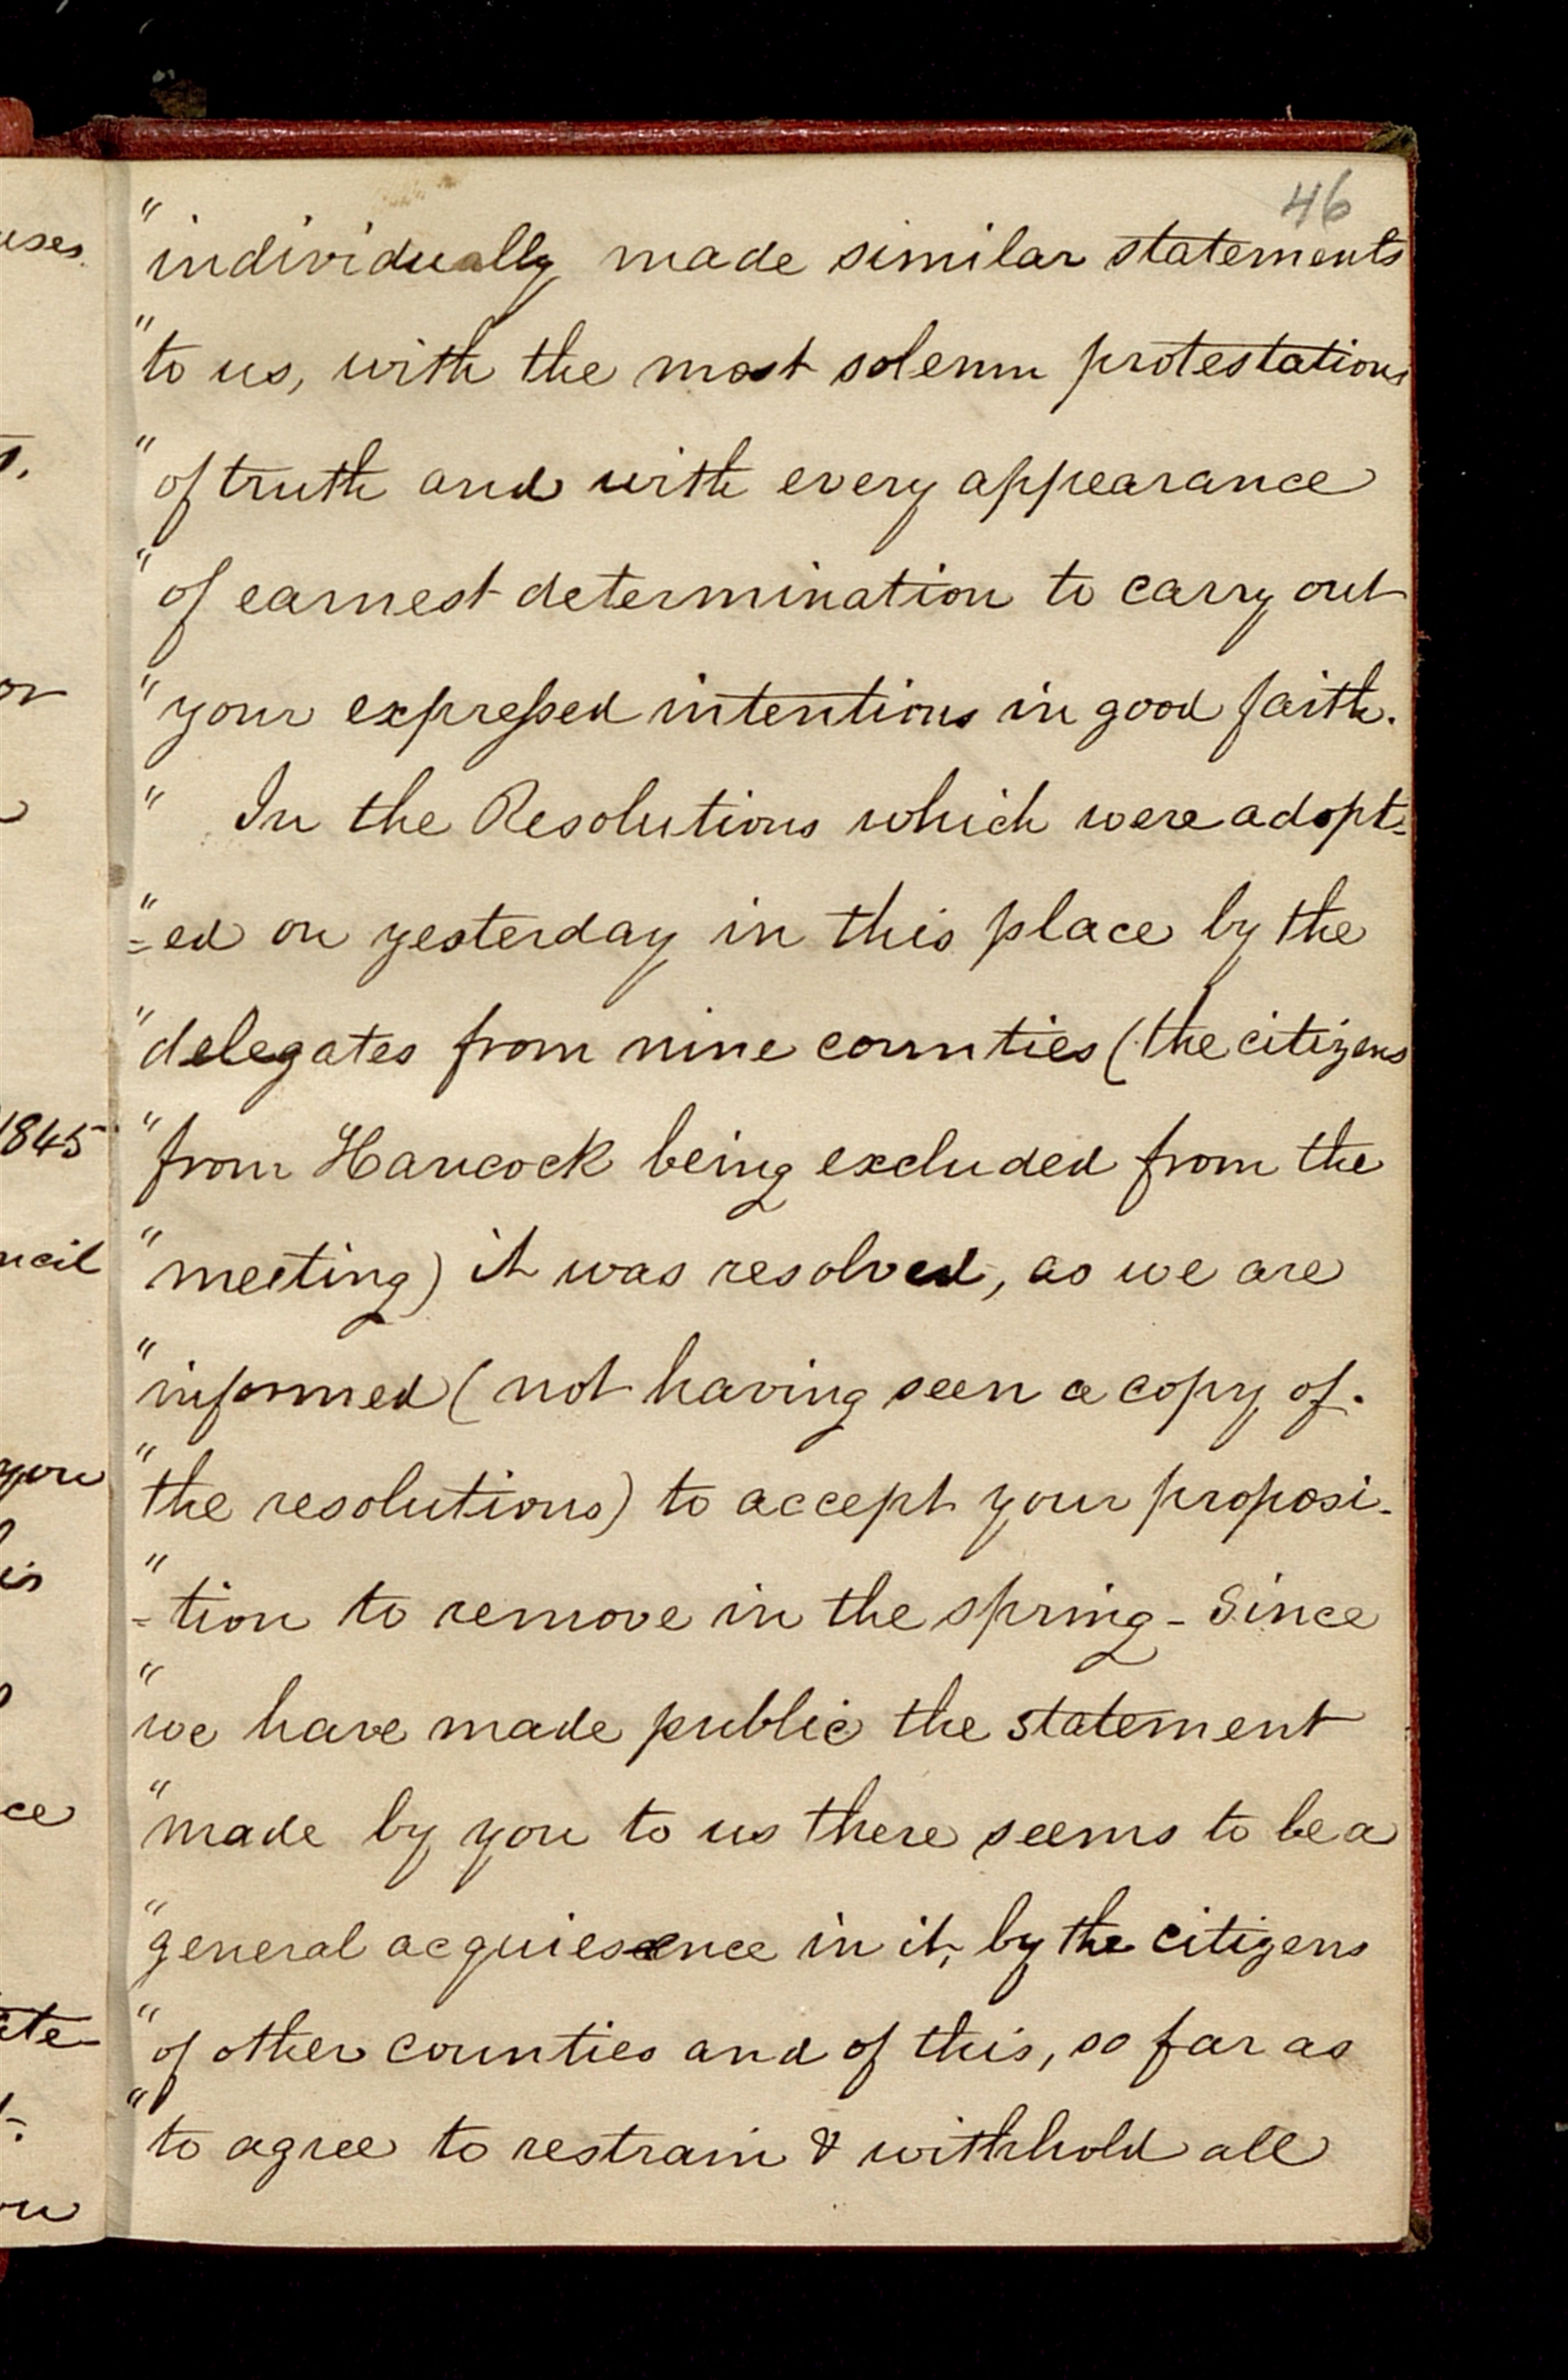 46
"individually made similar statements
"to us, with the most solemn protestations
"of truth and with every appearance
"of earnest determination to carry out
"your expressed intentions in good faith.
" In the Resolutions which were adopt=
"=ed on yesterday in this place by the
"delegates from nine counties (the citizens
"from Hancock being excluded from the
"meeting) it was resolved, as we are
"informed (not having seen a copy of.
"the resolutions) to accept your proposi-
"=tion to remove in the spring - Since
"we have made public the statement
"made by you to us there seems to be a
"general acquiescence in it, by the citizens
"of other counties and of this, so far as
"to agree to restrain & withhold all
1845
you